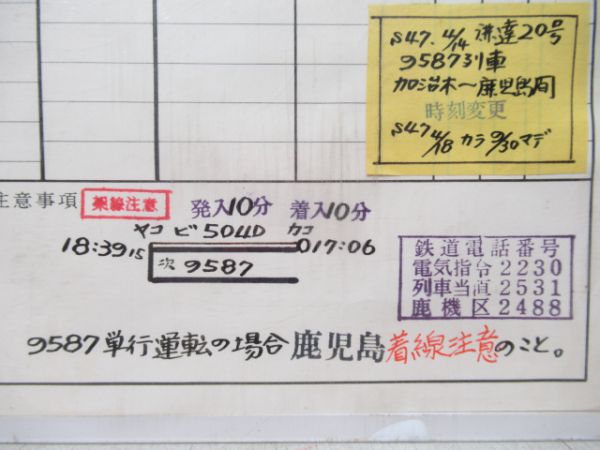 S47. 4/14 達達20号
9587列車
加治木～鹿児島間
時刻変更
S47 4/18 カラ 9/30 マデ
注意事項
架線注意
発入10分 着入10分
ヤコ ビ 504D カコ
18:39 15
017:06
次 9587
鉄道電話番号
電気指令2230
列車当直2531
鹿機区2488
9587単行運転の場合鹿児島着線注意のこと。